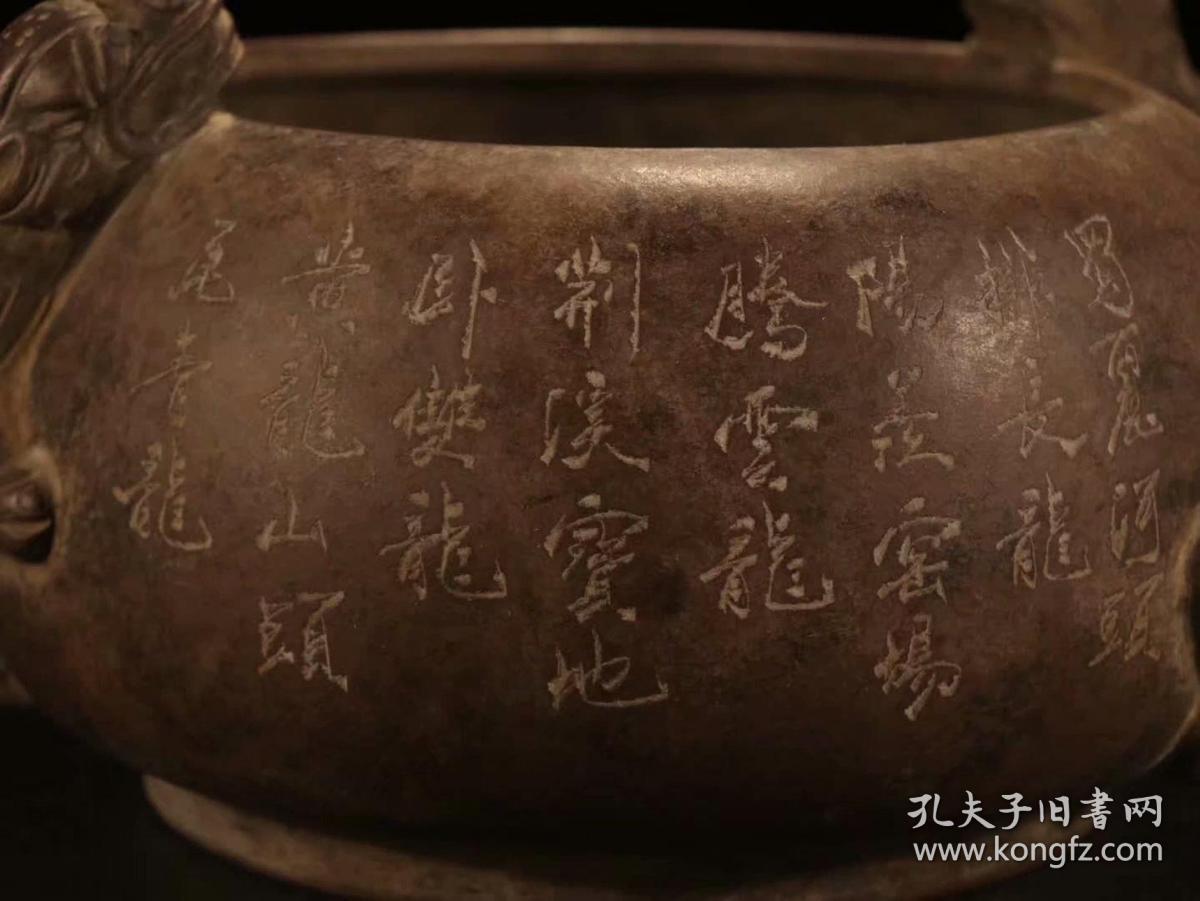 蜀麗河頭
排長龍
陽羨窑場
騰雲龍
荆溪寶地
臥雙龍
黄龍山頭
尾青龍
孔夫子旧書网
www.kongfz.com